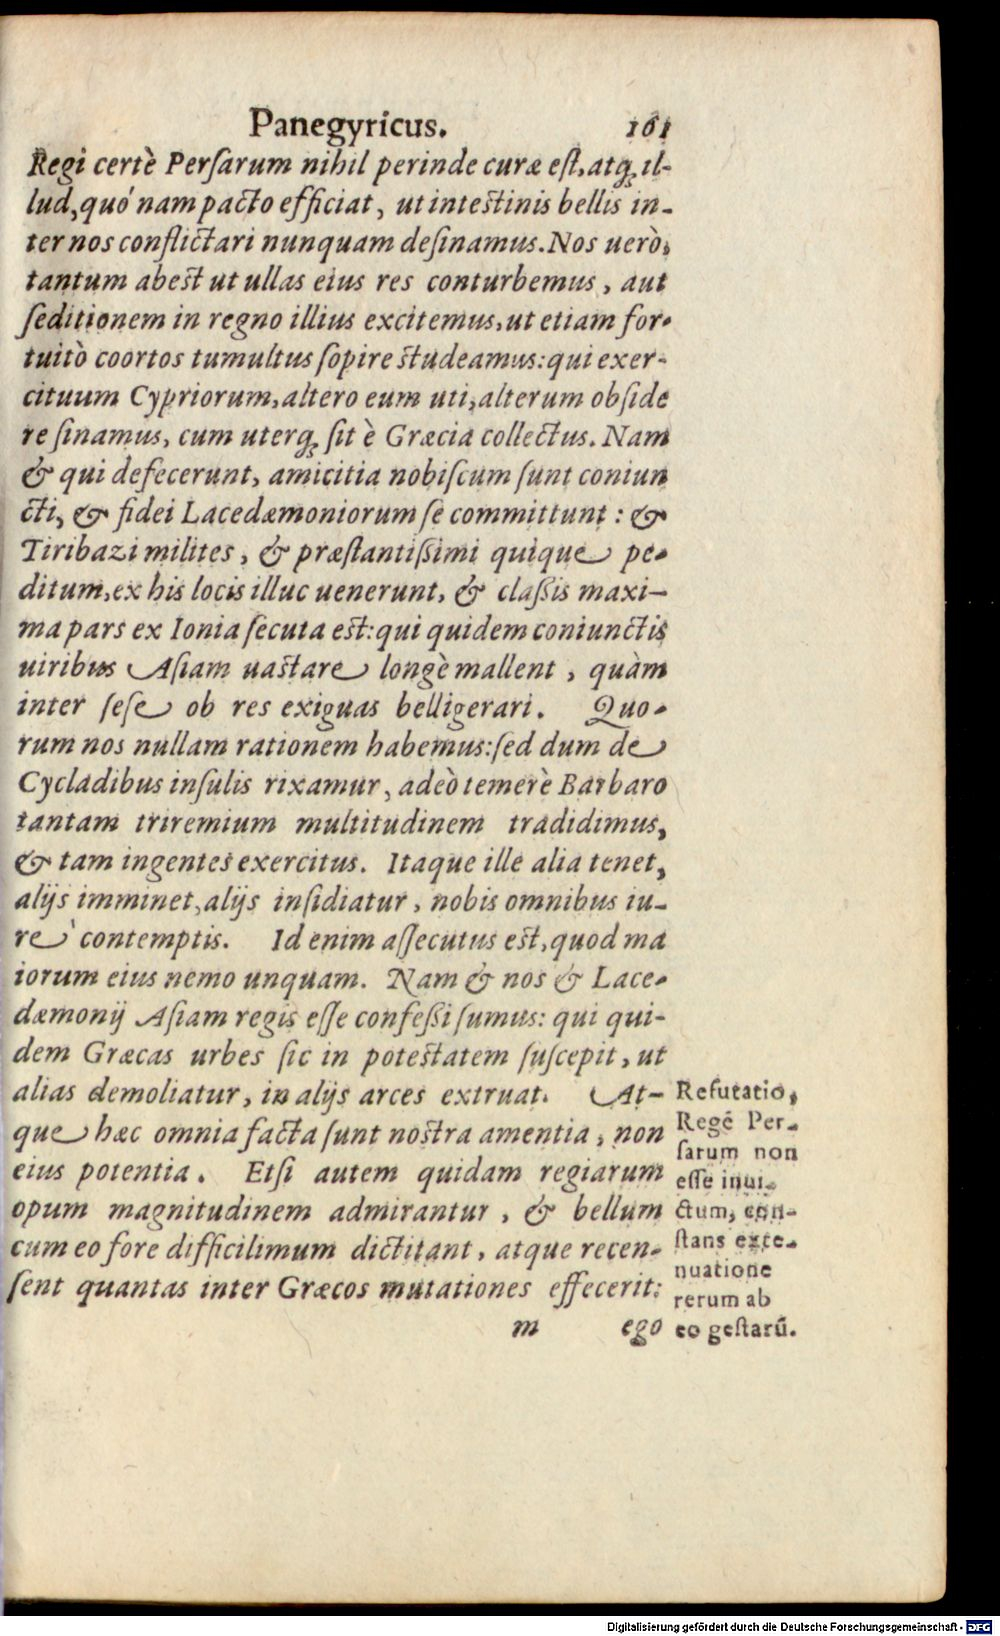 Panegyricus. 161
Regi certè Perſarum nihil perinde curæ eſt, atq; il-
lud, quó nam pacto efficiat, ut inteſtinis bellis in-
ter nos conflictari nunquam deſinamus. Nos uerò,
tantum abeſt ut ullas eius res conturbemus, aut
ſeditionem in regno illius excitemus, ut etiam for-
tuitò coortos tumultus ſopire ſtudeamus: qui exer-
cituum Cypriorum, altero eum uti, alterum obſide
re ſinamus, cum uterq; ſit è Græcia collectus. Nam
& qui defecerunt, amicitia nobiſcum ſunt coniun
cti, & fidei Lacedæmoniorum ſe committunt: &
Tiribazi milites, & præſtantiſsimi quique pe-
ditum, ex his locis illuc uenerunt, & claſsis maxi-
ma pars ex Ionia ſecuta eſt: qui quidem coniunctis
uiribus Aſiam uaſtare longè mallent, quàm
inter ſeſe ob res exiguas belligerari. Quo-
rum nos nullam rationem habemus: ſed dum de
Cycladibus inſulis rixamur, adeò temerè Barbaro
tantam triremium multitudinem tradidimus,
& tam ingentes exercitus. Itaque ille alia tenet,
alijs imminet, alijs inſidiatur, nobis omnibus iu-
re contemptis. Id enim aſſecutus eſt, quod ma
iorum eius nemo unquam. Nam & nos & Lace-
dæmonij Aſiam regis eſſe confeſsi ſumus: qui qui-
dem Græcas urbes ſic in poteſtatem ſuſcepit, ut
alias demoliatur, in alijs arces extruat. At-
que hæc omnia facta ſunt noſtra amentia, non
eius potentia. Etſi autem quidam regiarum
opum magnitudinem admirantur, & bellum
cum eo fore difficilimum dictitant, atque recen-
ſent quantas inter Græcos mutationes effecerit:
m ego
Refutatio,
Regē Per-
ſarum non
eſſe inui-
ctum, con-
ſtans exte-
nuatione
rerum ab
eo geſtarū.
Digitalisierung gefördert durch die Deutsche Forschungsgemeinschaft - DFG